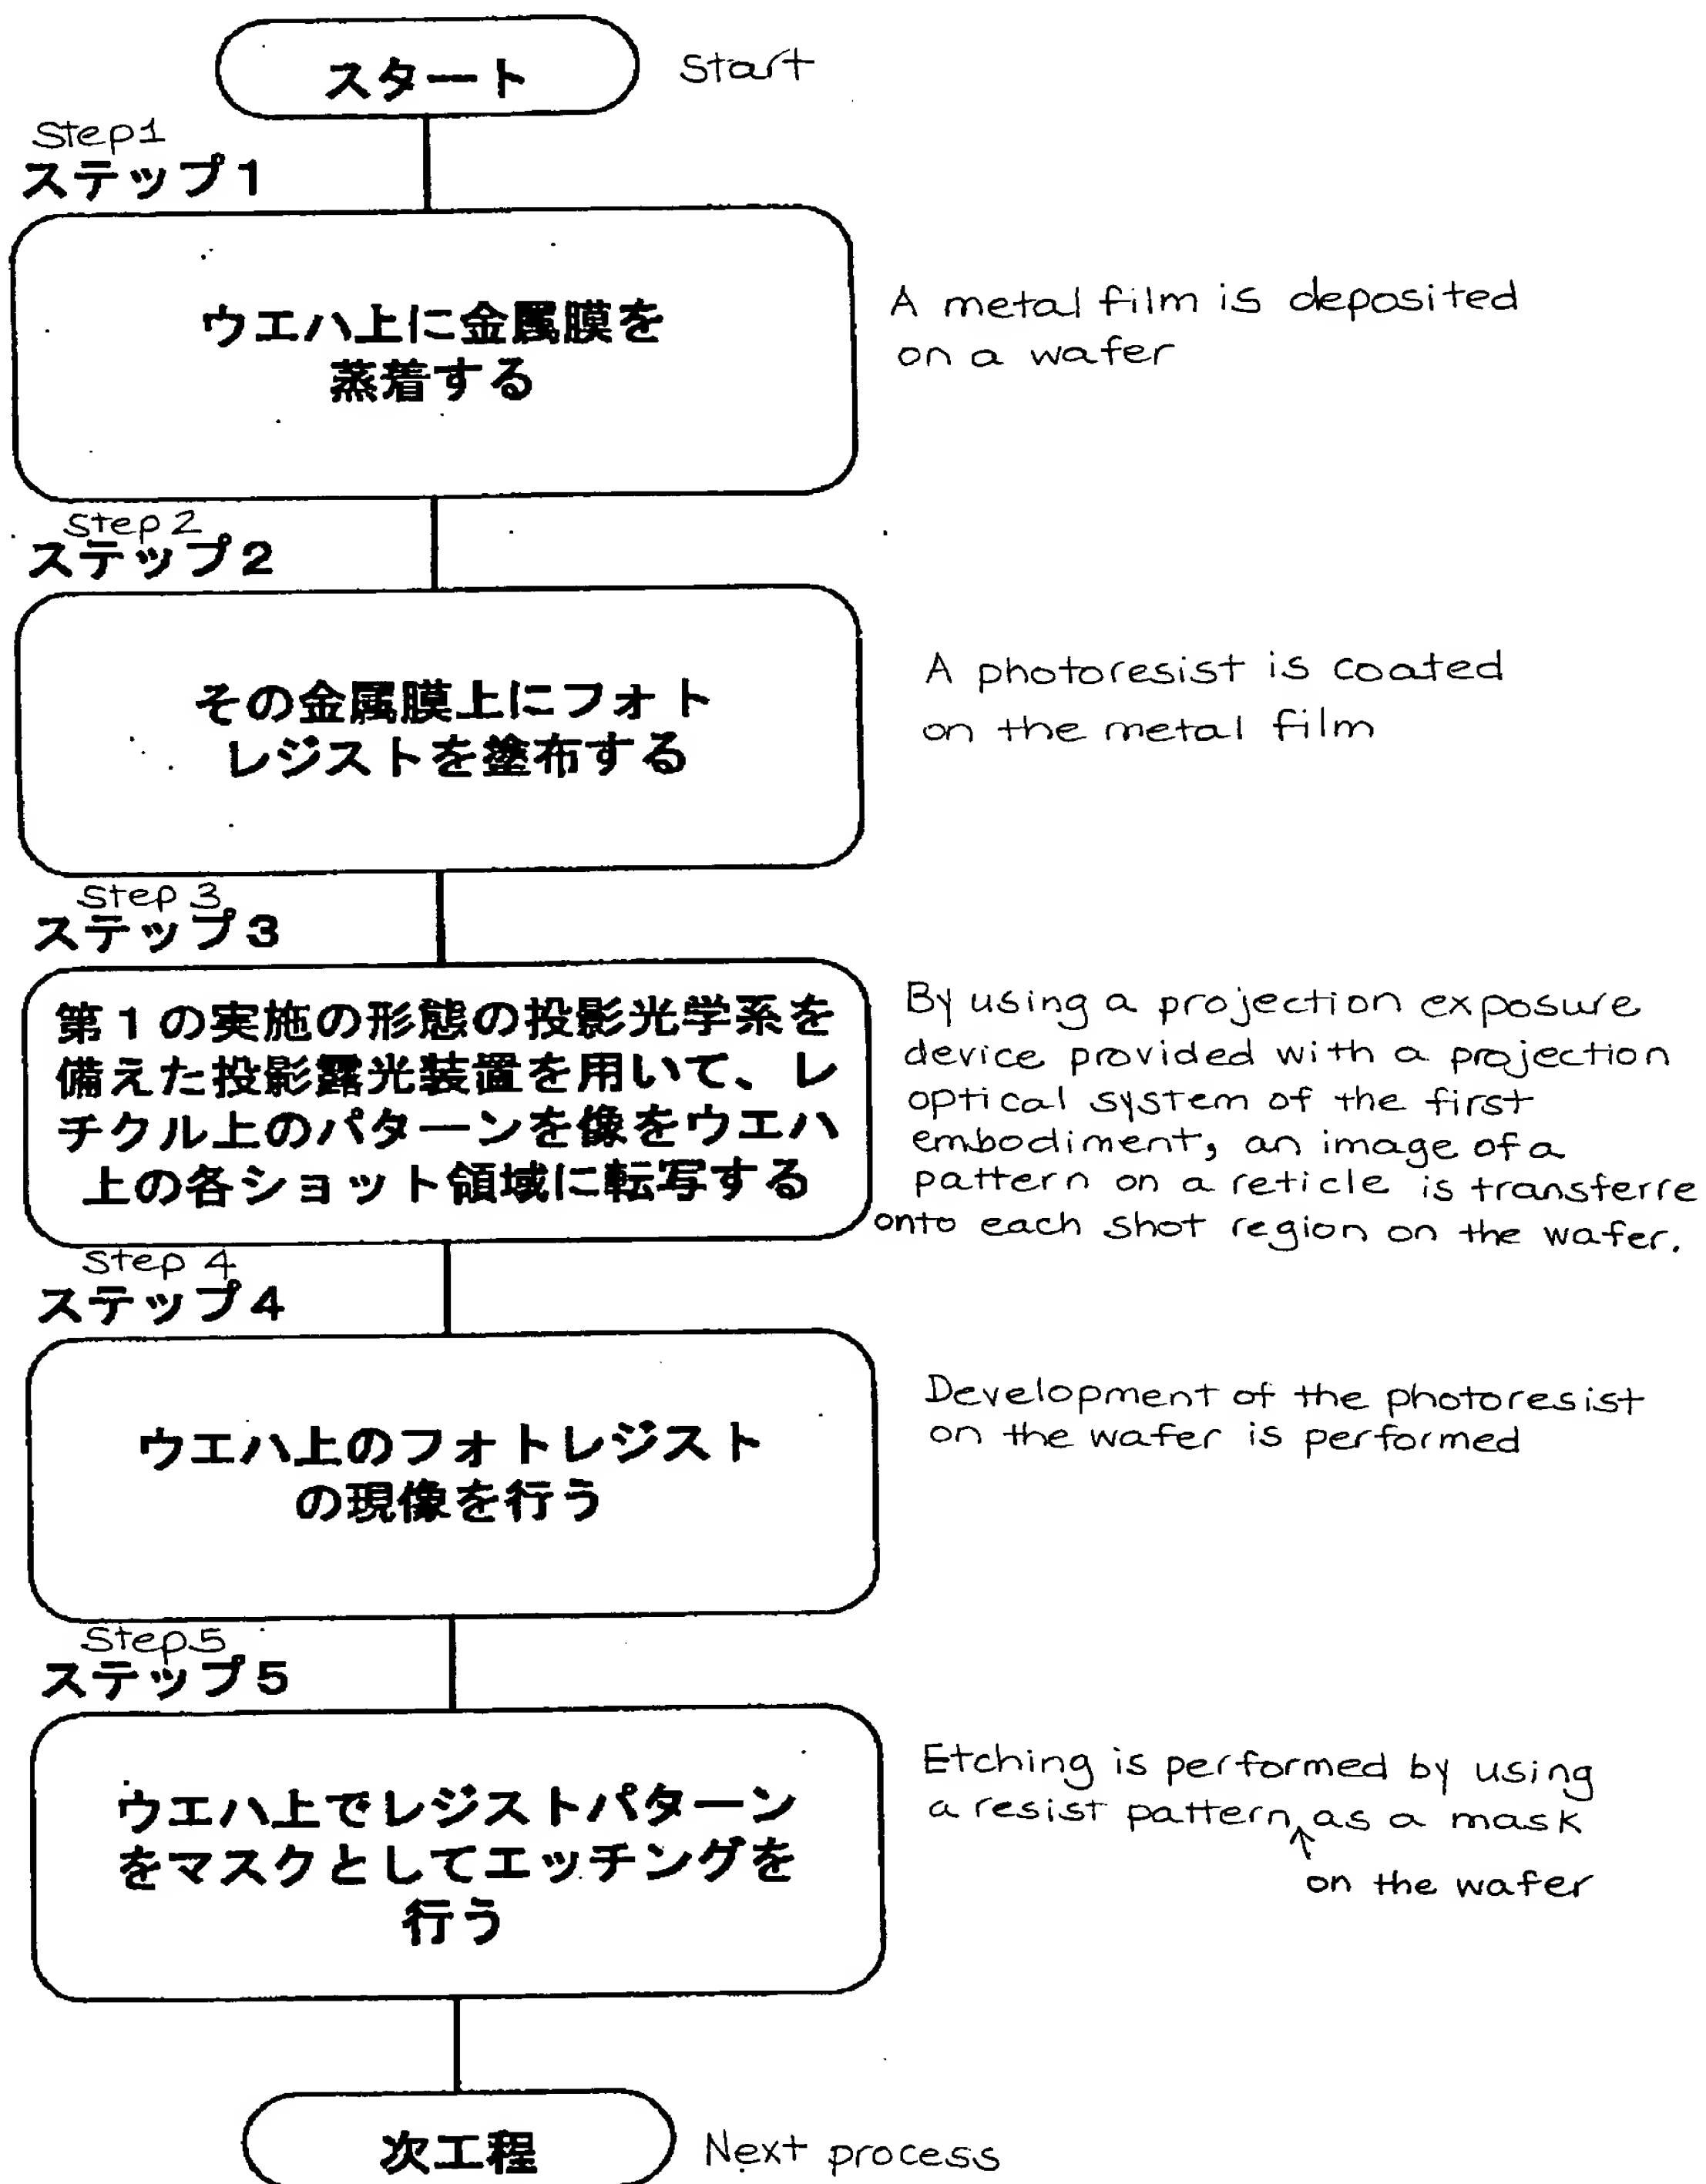 スタート
Start
Step1
ステップ1
ウエハ上に金属膜を
蒸着する
A metal film is deposited
on a wafer
Step 2
ステップ2
その金属膜上にフォト
レジストを塗布する
A photoresist is coated
on the metal film
Step 3
ステップ3
第1の実施の形態の投影光学系を
備えた投影露光装置を用いて、レ
チクル上のパターンを像をウエハ
上の各ショット領域に転写する
By using a projection exposure
device provided with a projection
optical system of the first
embodiment, an image of a
pattern on a reticle is transferre
onto each shot region on the wafer.
Step 4
ステップ4
ウエハ上のフォトレジスト
の現像を行う
Development of the photoresist
on the wafer is performed
Step 5
ステップ5
ウエハ上でレジストパターン
をマスクとしてエッチングを
行う
Etching is performed by using
a resist pattern as a mask
on the wafer
次工程
Next process